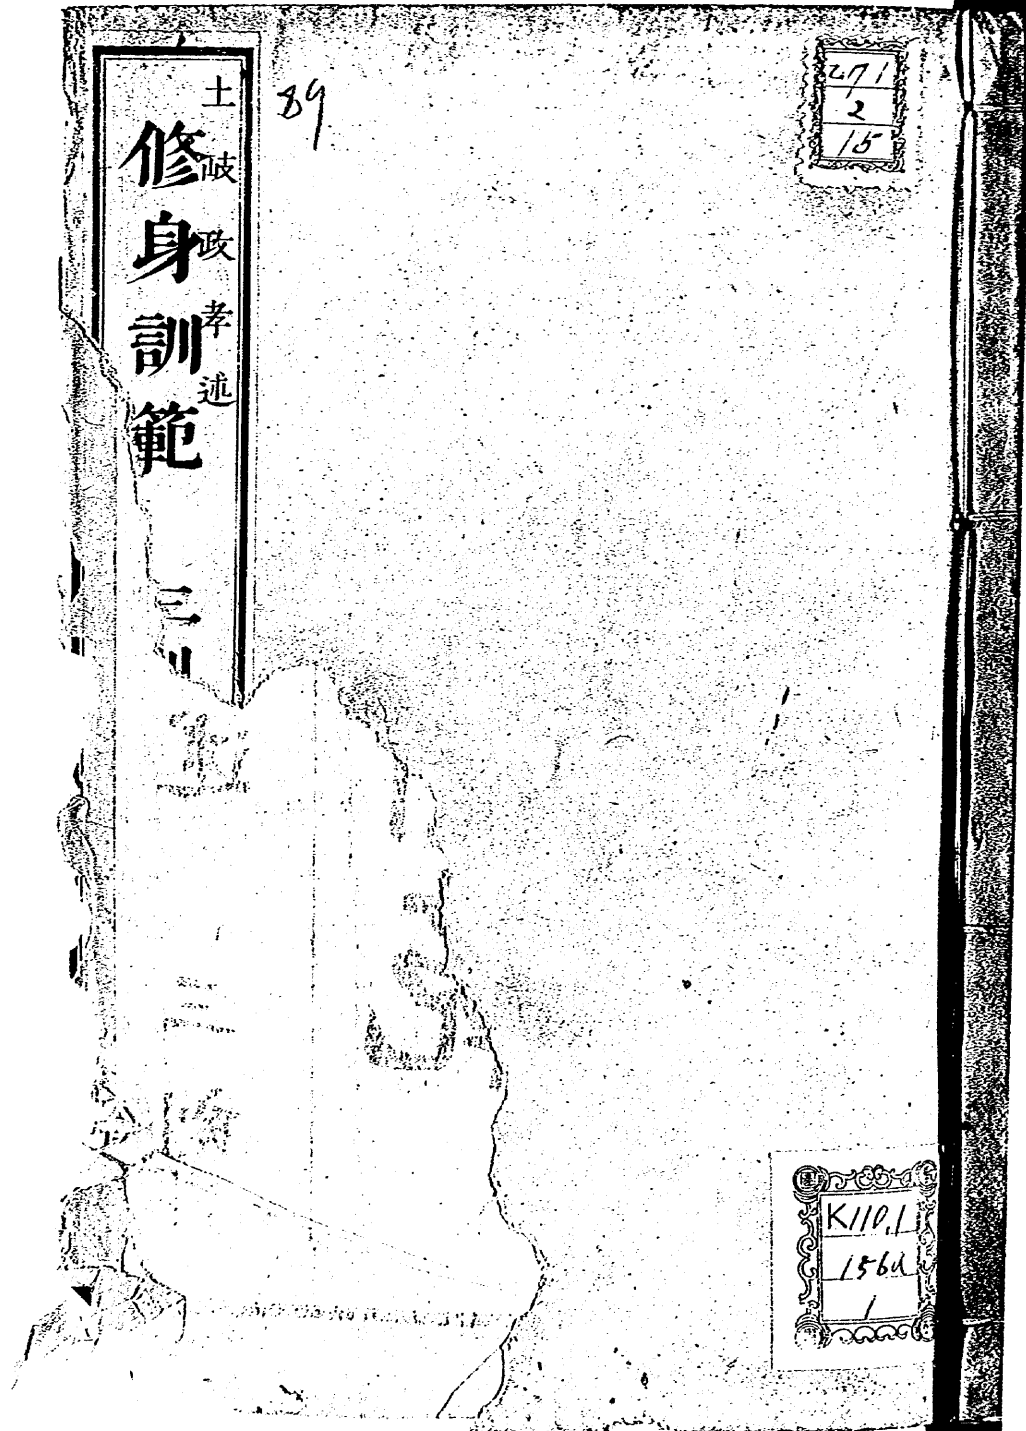 土岐政孝述
修身訓範 三
89
271
2
15
K110.1
156u
1